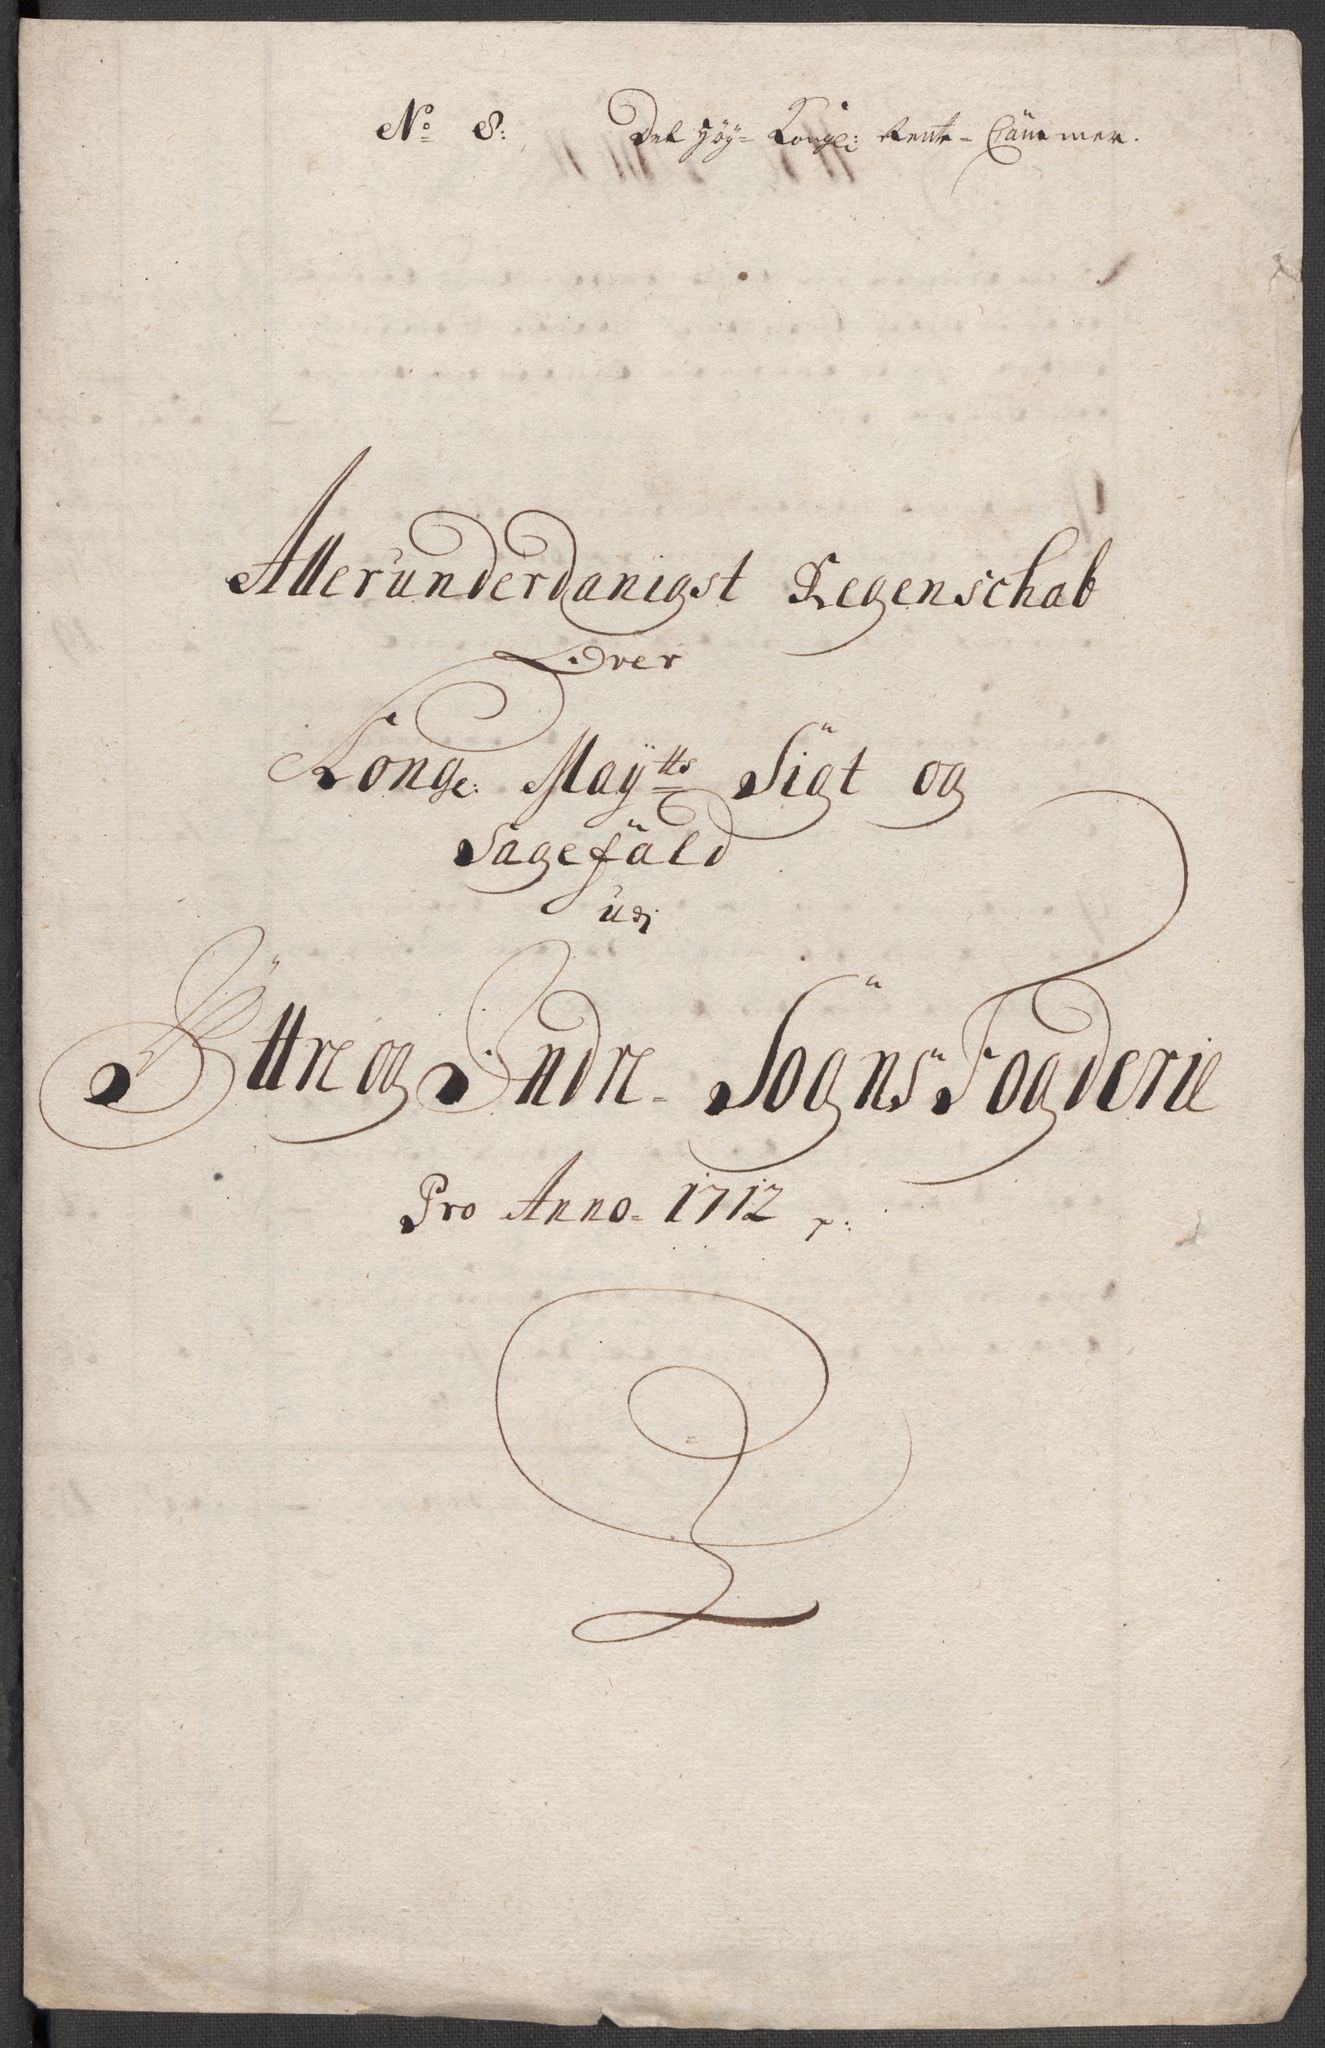 No 8: Det Höÿ- Kongl: Rente- Cammer.
Allerunderdanigst Regenschab
Over
Kong: Maÿtts Sigt og
Sagefald
udj
Ÿttre og Indre- Sogns Fogderie
Pro Anno- 1712 p: